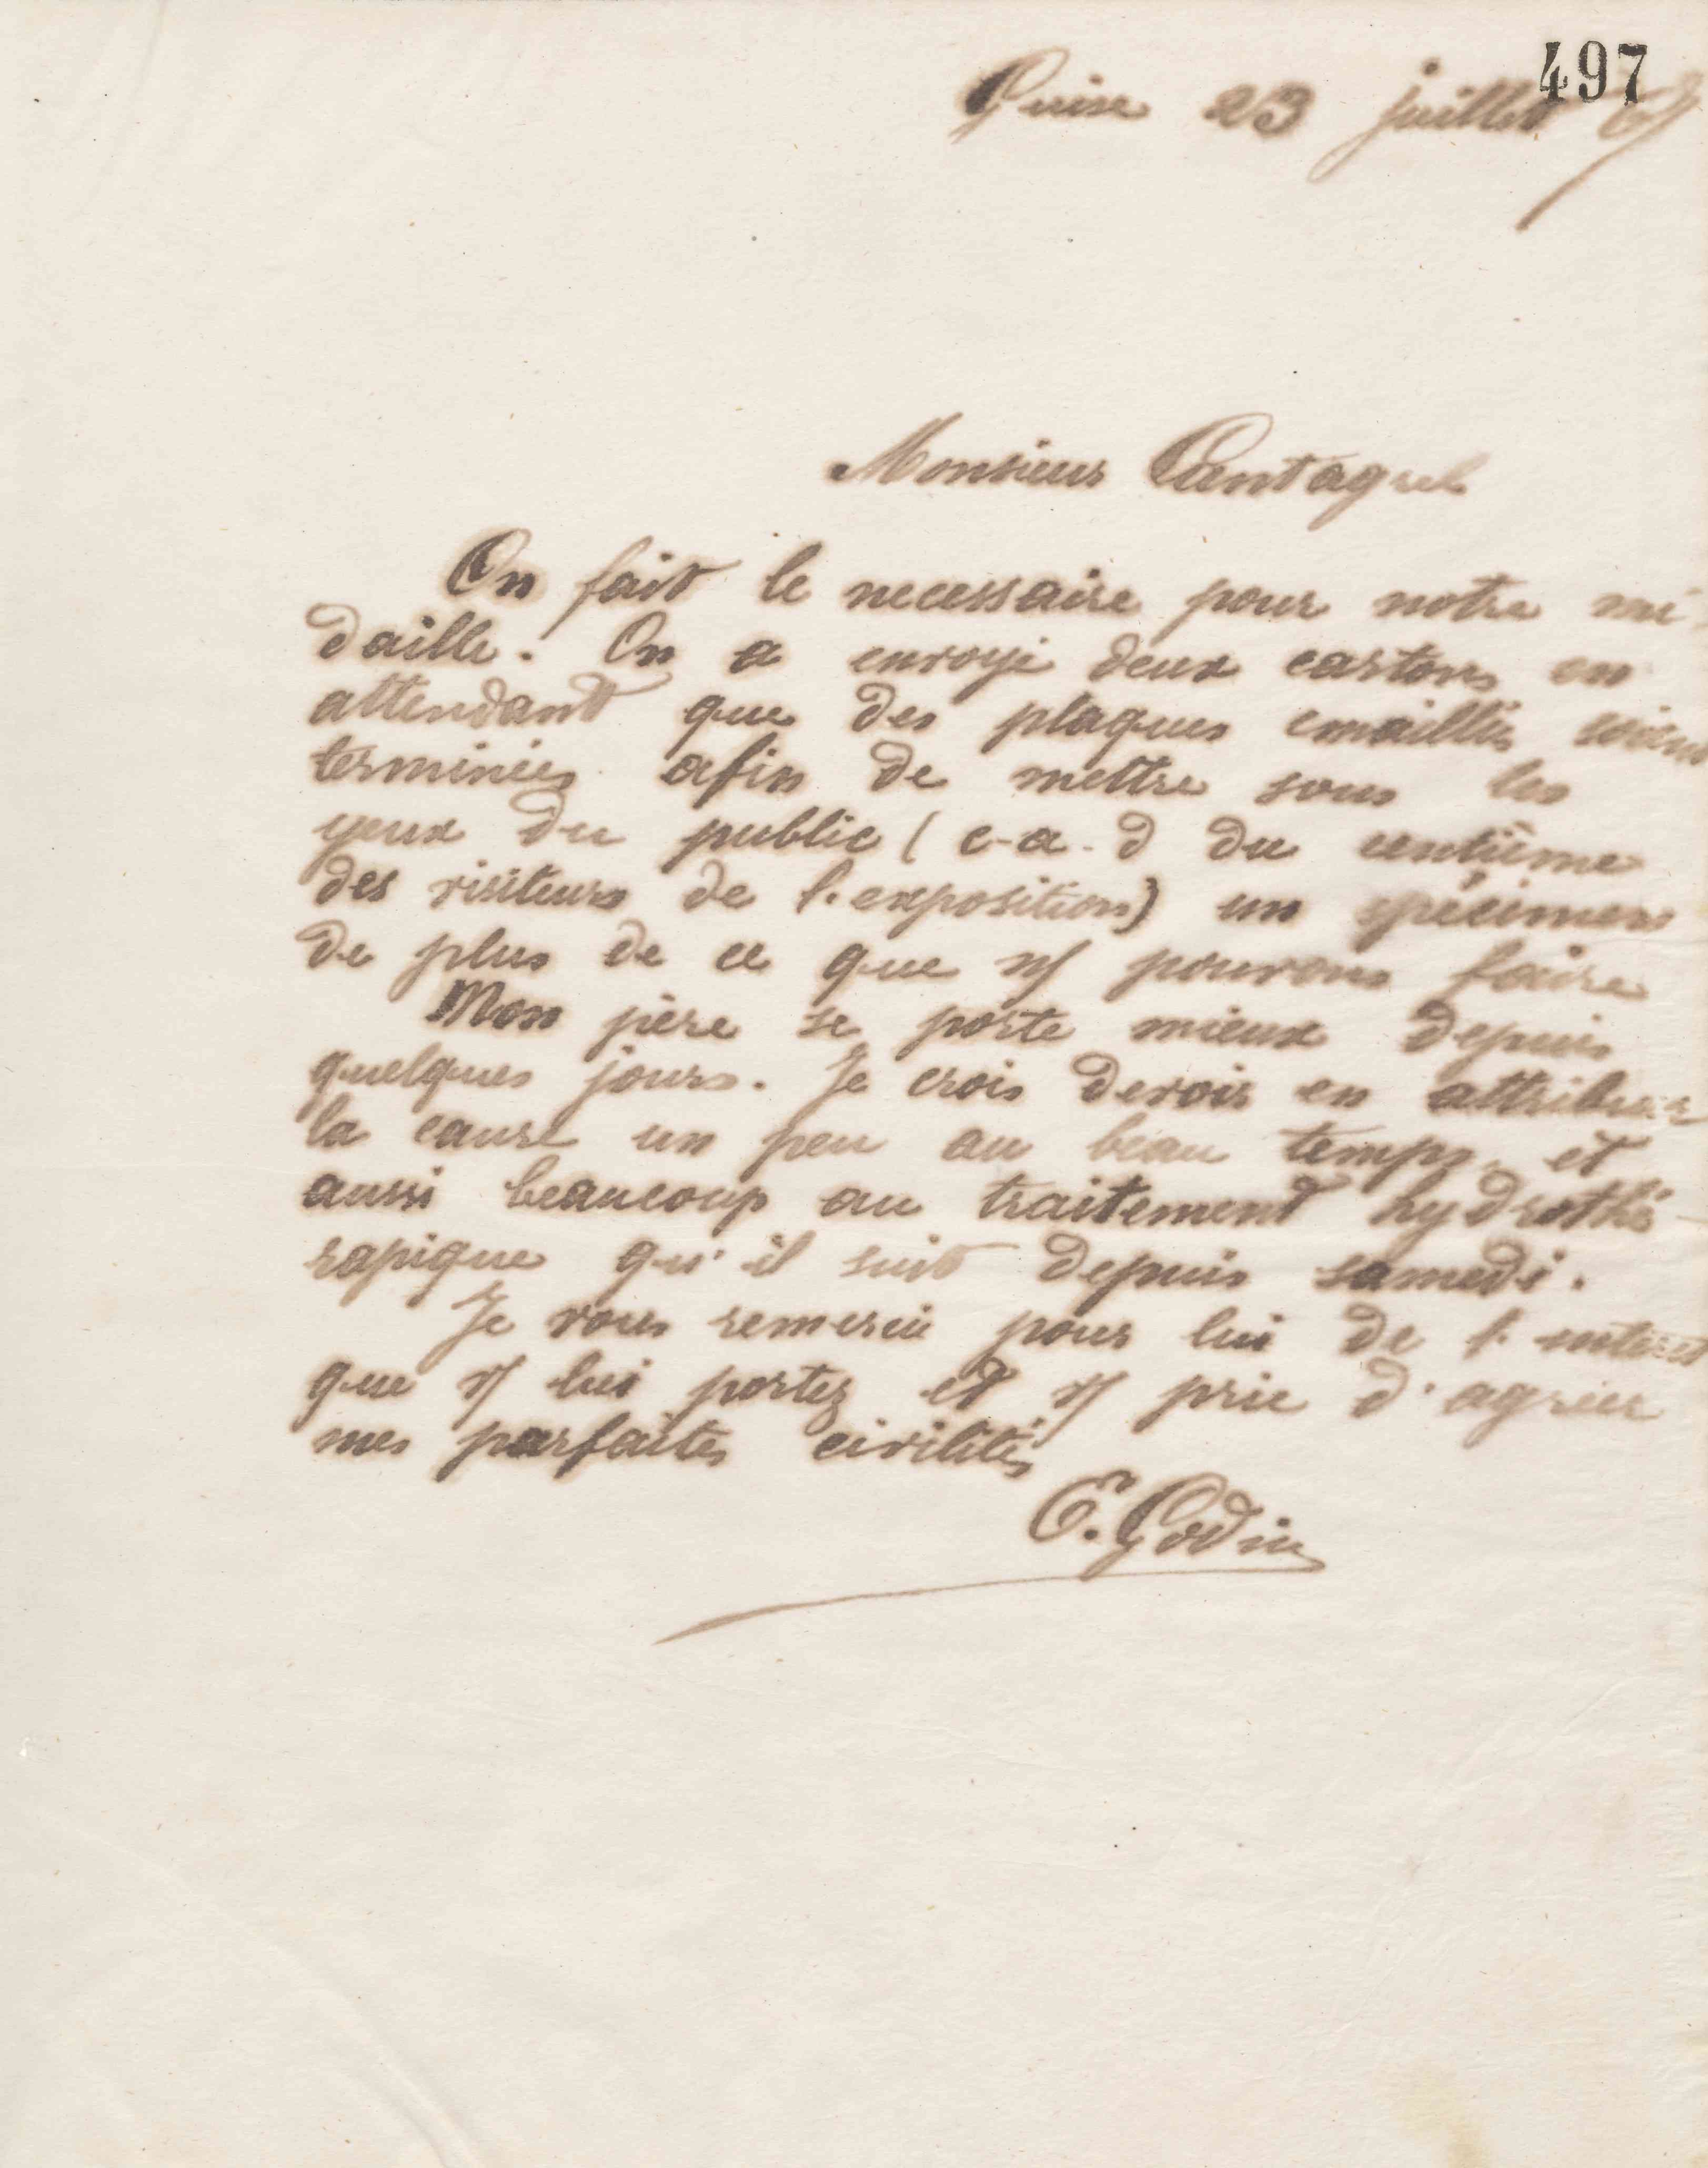 497
Guise 23 juillet 67
Monsieur Cantagrel
On fait le necessaire pour notre mé
daille. On a envoyé deux cartons en
attendant que des plaques emaillées soient
terminées afin de mettre sous les
yeux du public (c-a-d du centième
des visiteurs de l'exposition) un spécimen
de plus de ce que n/ pouvons faire
Mon père se porte mieux depuis
quelques jours. Je crois devoir en attribuer
la cause un peu au beau temps et
aussi beaucoup au traitement hydrothé
rapique qu'il suit depuis samedi.
Je vous remercie pour lui de l'interet
que v/ lui portez et v/ prie d'agréer
mes parfaites civilités
E. Godin